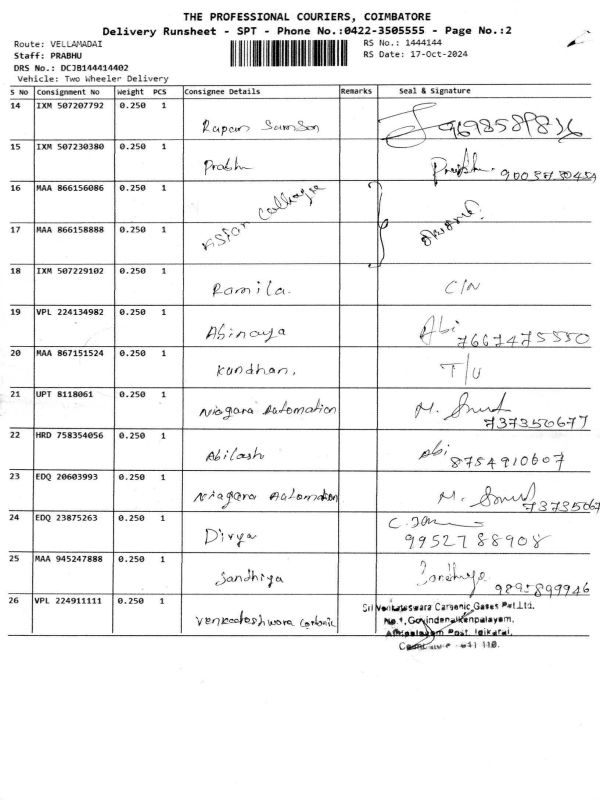 THE PROFESSIONAL COURIERS, COIMBATORE
Delivery Runsheet - SPT - Phone No.:0422-3505555 - Page No.:2
Route: VELLAMADAI
RS No.: 1444144
Staff: PRABHU
RS Date: 17-Oct-2024
DRS No.: DCJB144414402
Vehicle: Two Wheeler Delivery
S No Consignment No Weight PCS Consignee Details Remarks Seal & Signature
14 IXM 507207792 0.250 1 Samson 9698589836
15 IXM 507230380 0.250 1 Prabhu Prabhu
16 MAA 866156086 0.250 1
17 MAA 866158888 0.250 1
18 IXM 507229102 0.250 1 Ramila. C/N
19 VPL 224134982 0.250 1 Abinaya Abi 7667475550
20 MAA 867151524 0.250 1 Kandhan. T/U
21 UPT 8118061 0.250 1 Niagara Automation M. 737350677
22 HRD 758354056 0.250 1 Abilash Abi 8754910607
23 EDQ 20603993 0.250 1 Niagara Automation M. 7373506
24 EDQ 23875263 0.250 1 Divya 9952788908
25 MAA 945247888 0.250 1 Sandhiya Sandhiya 9895899946
26 VPL 224911111 0.250 1 Venkateshwara Carbonic
Sri Venkateswara Carbonic Gases Pvt.Ltd.
No.1, Govindanaickenpalayam,
Post,